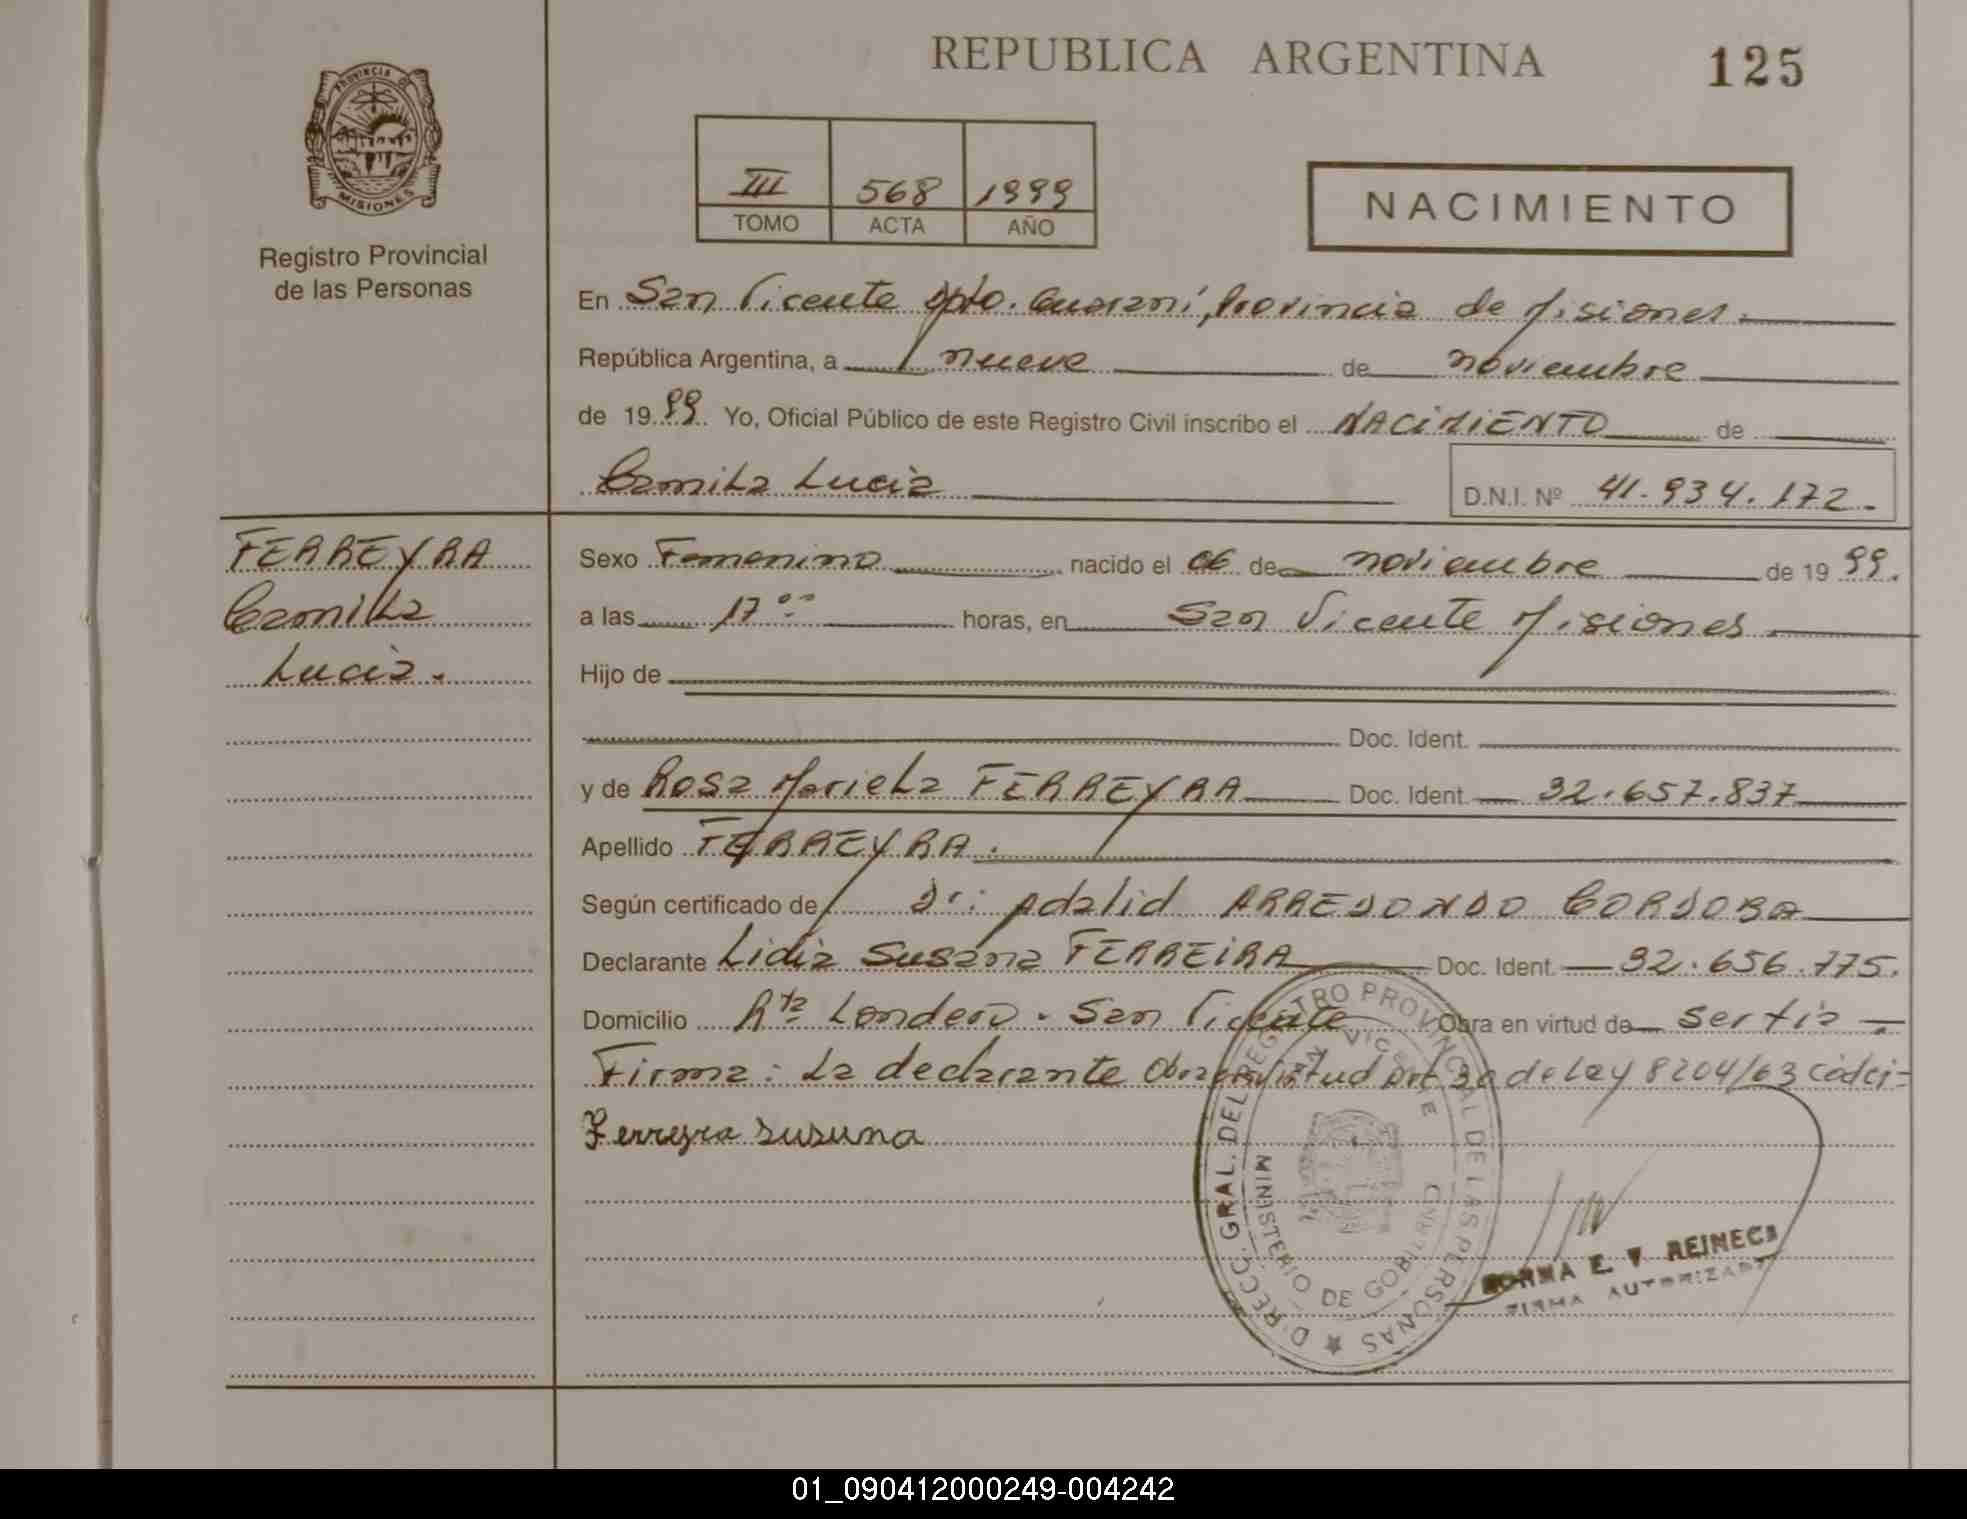 REPUBLICA ARGENTINA
125
PROVINCIA DE
MISIONES
Registro Provincial
de las Personas
III 568 1999
TOMO ACTA AÑO
NACIMIENTO
En San Vicente Dpto. Guaraní, Provincia de Misiones.
República Argentina, a nueve de noviembre
de 19 99. Yo, Oficial Público de este Registro Civil inscribo el NACIMIENTO de
Camila Lucia
D.N.I. Nº 41.934.172.
FERREYRA
Camila
Lucia.
Sexo Femenino nacido el 06 de noviembre de 19 99.
a las 17 ºº horas, en San Vicente Misiones
Hijo de
Doc. Ident.
y de Rosa Mariela FERREYRA Doc. Ident. 32.657.837
Apellido FERREYRA.
Según certificado de Dr: Adalid ARREDONDO CORDOBA
Declarante Lidia Susana FERREIRA Doc. Ident. 32.656.775.
Domicilio Rta Londero. San Vicente Obra en virtud de ser tia
Firma: La declarante Obra virtud Art 30 de Ley 8204/63
Ferreyra Susuna
DIRECC. GRAL. DEL REGISTRO PROVINCIAL DE LAS PERSONAS
SAN VICENTE
MINISTERIO DE GOBIERNO
NORMA E. V. REINECK
FIRMA AUTORIZADA
01_090412000249-004242